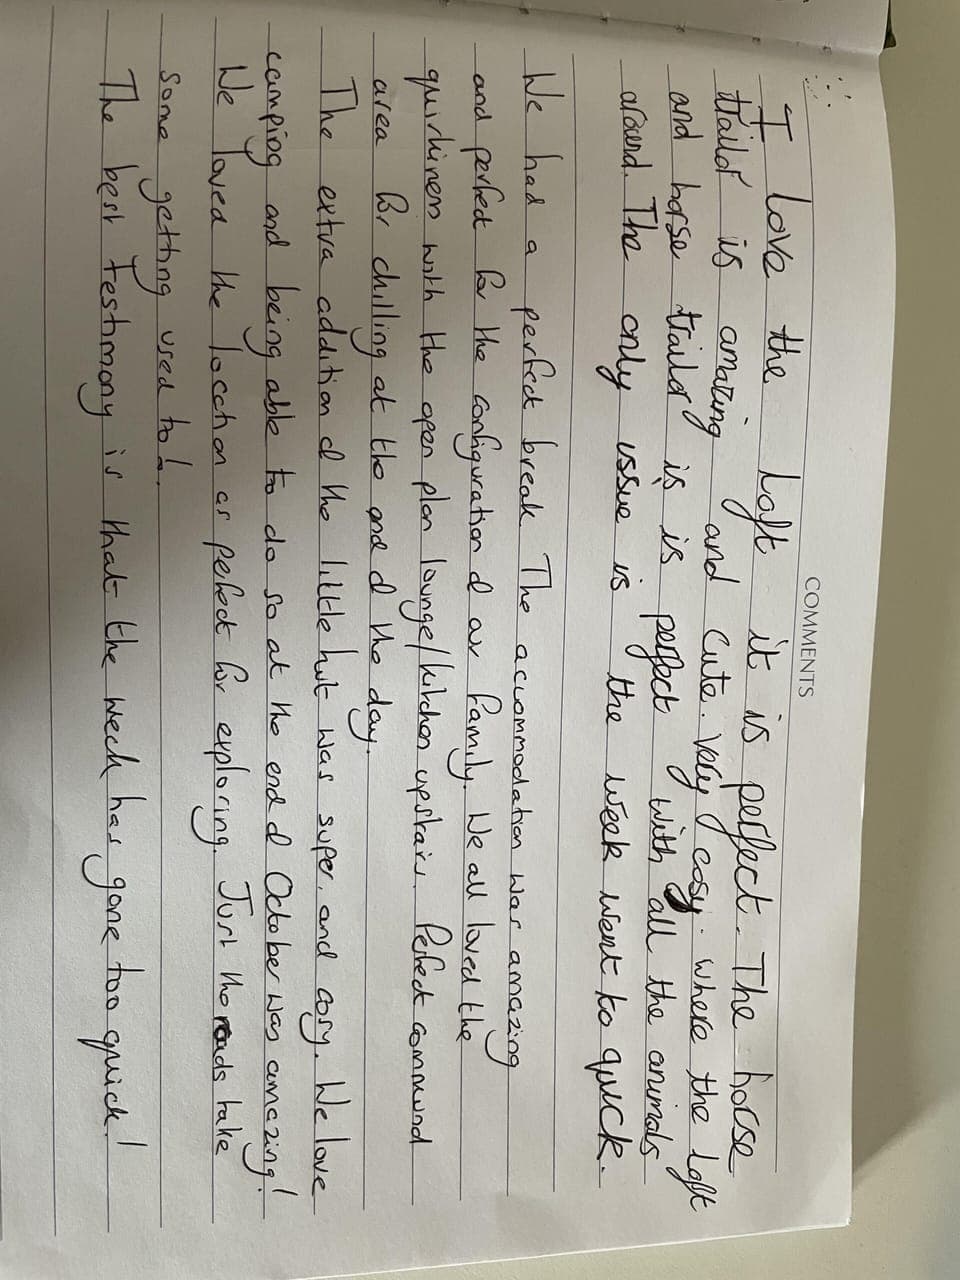 COMMENTS
I love the Loft it is perfect. The horse
traild is amazing and cute. Very cosy. where the Loft
and horse traild is is perfect with all the animals
around. The only issue is the week went to quick.
We had a perfect break The accommodation was amazing
and perfect for the configuration of our family. We all loved the
quirkiness with the open plan lounge/kitchen upstairs. Perfect communal
area for chilling at the end of the day.
The extra addition of the little hut was super, and cosy. We love
camping and being able to do so at the end of October was amazing!
We loved the location as perfect for exploring. Just the roads take
some getting used to!.
The best testimony is that the week has gone too quick!